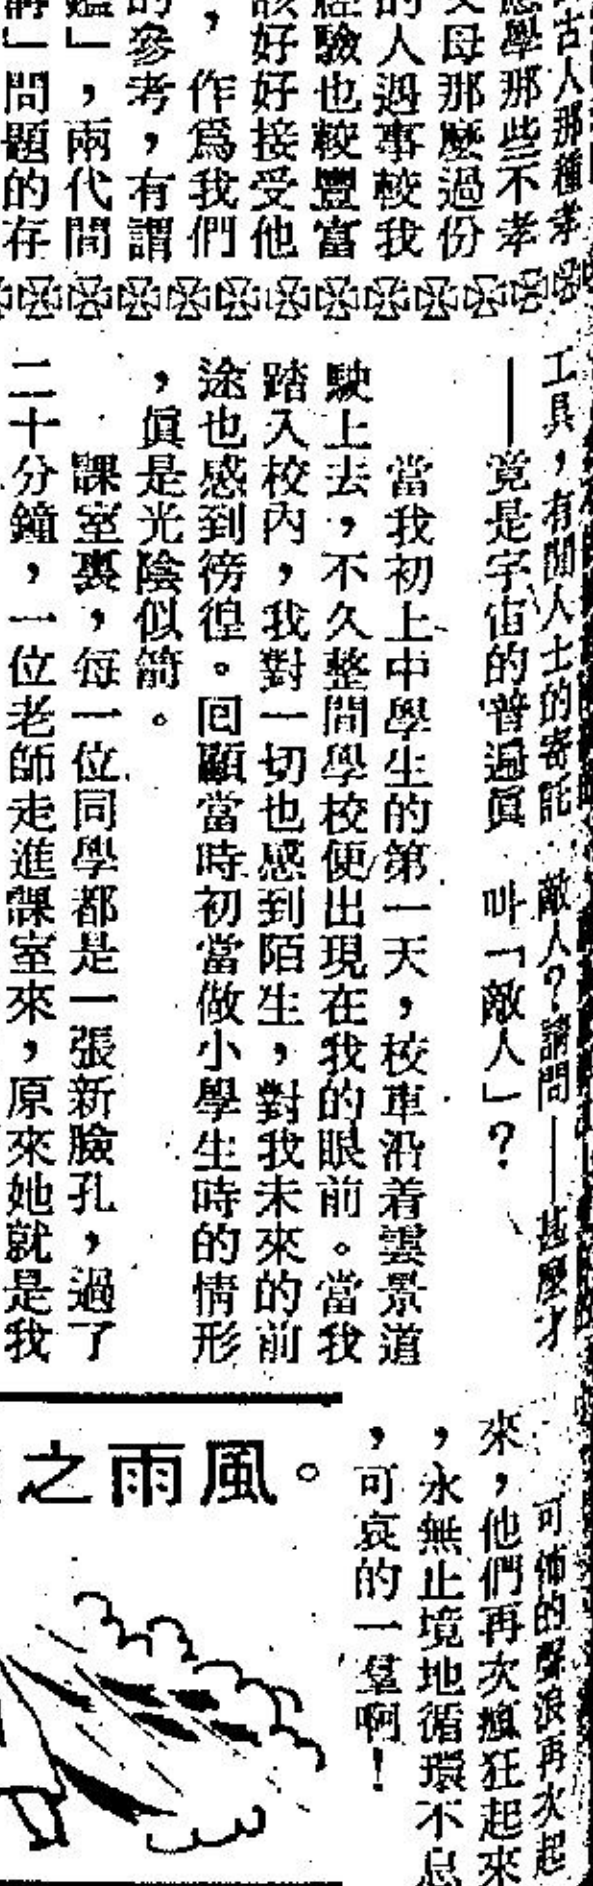 古人那種孝
應學那些不孝
父母那麼過份
的人遇事較我
經驗也較豐富
該好好接受他
，作爲我們
的參考，有謂
鑑」，兩代間
」問題的存
工具，有閒人士的寄託
——竟是宇宙的普遍眞
敵人？請問——甚麼才
叫「敵人」？
當我初上中學生的第一天，校車沿着雲景道
駛上去，不久整間學校便出現在我的眼前。當我
踏入校內，我對一切也感到陌生，對我未來的前
途也感到徬徨。回顧當時初當做小學生時的情形
，眞是光陰似箭。
課室裏，每一位同學都是一張新臉孔，過了
二十分鐘，一位老師走進課室來，原來她就是我
可怖的聲浪再次起
來，他們再次瘋狂起來
，永無止境地循環不息
，可哀的一羣啊！
。風雨之